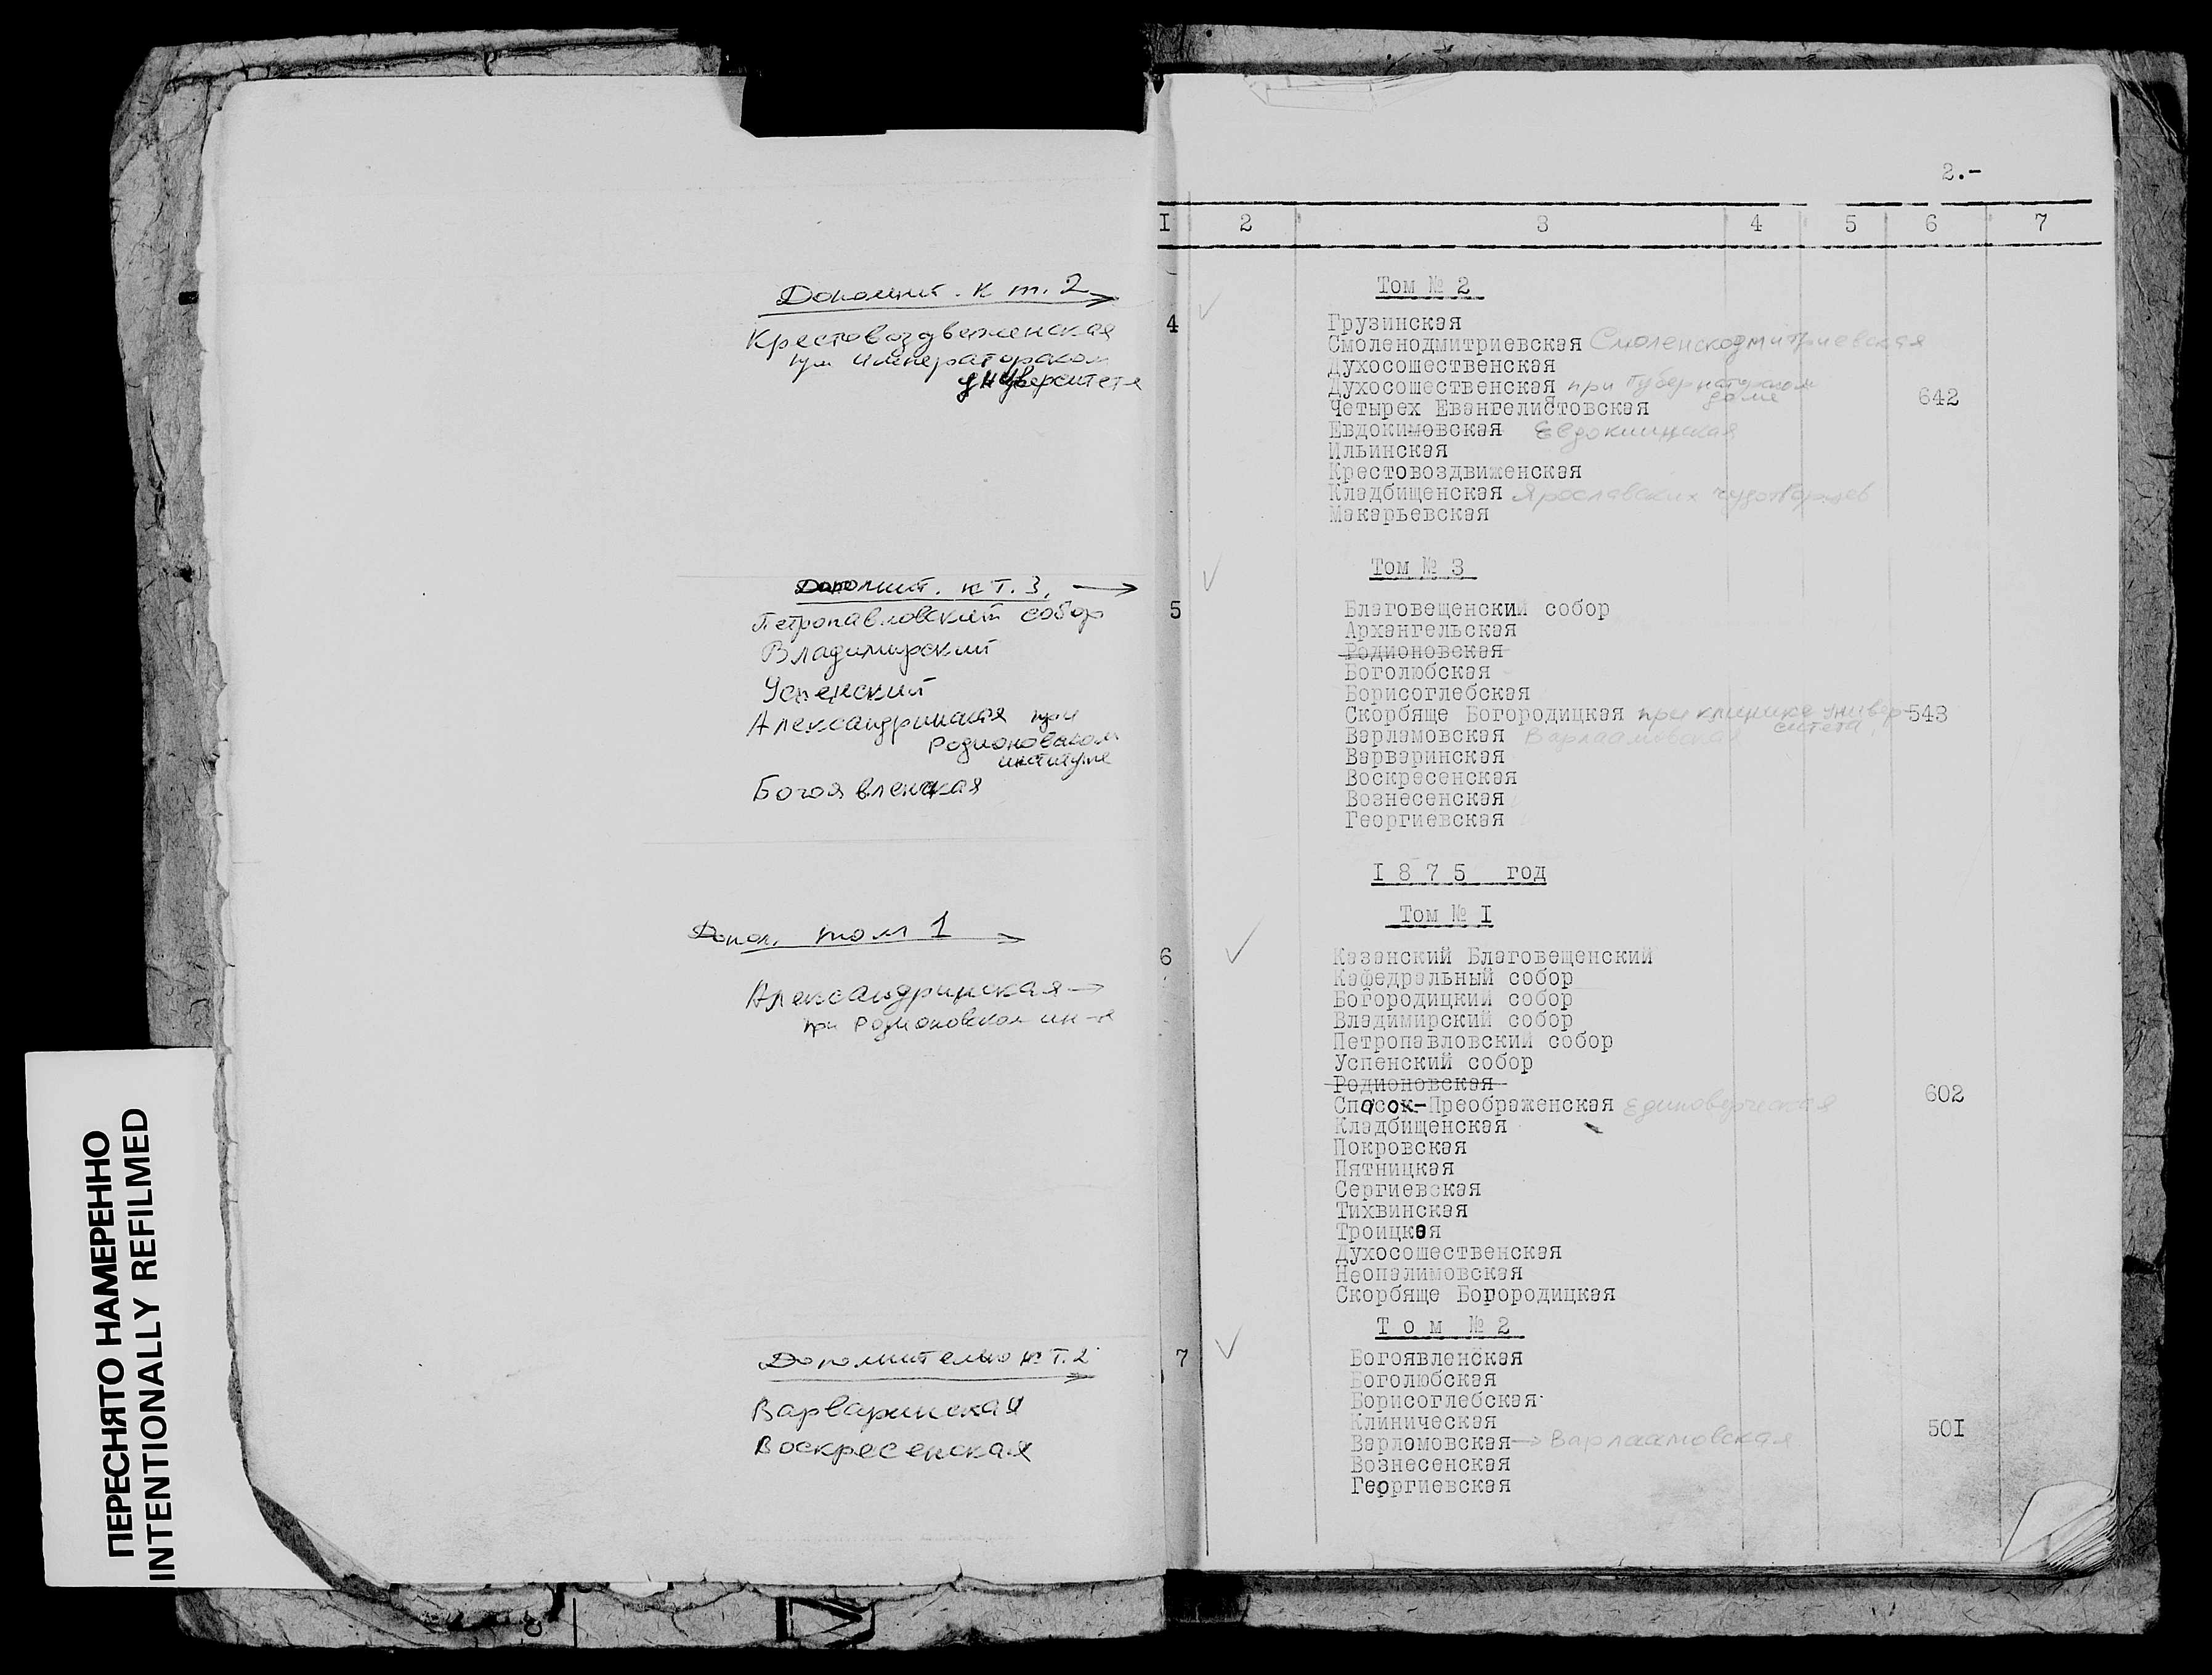 Дополнит. к т. 2
Крестовоздвиженская
при императорском
университете
Дополнит. к т. 3.
Петропавловский собор
Владимирский
Успенский
Александринская при
Родионовском
институте
Богоявленская
Допол. том 1
Александринская
при Родионовском ин-те
Дополнительно к т. 2
Варваринская
Воскресенская
ПЕРЕСНЯТО НАМЕРЕННО
INTENTIONALLY REFILMED
2.-
I 2 3 4 5 6 7
Том № 2
4 Грузинская
Смоленодмитриевская Смоленскодмитриевская
Духосошественская
Духосошественская при Губернаторском
доме
Четырех Евангелистовская 642
Евдокимовская Евдокиинская
Ильинская
Крестовоздвиженская
Кладбищенская Ярославских чудотворцев
Макарьевская
Том № 3
5 Благовещенский собор
Архангельская
Родионовская
Боголюбская
Борисоглебская
Скорбяще Богородицкая при клинике универ- 543
ситета
Варламовская Варлаамовская
Варваринская
Воскресенская
Вознесенская
Георгиевская
I 8 7 5 год
Том № I
6 Казанский Благовещенский
Кафедральный собор
Богородицкий собор
Владимирский собор
Петропавловский собор
Успенский собор
Родионовская
Спасок-Преображенская Единоверческая 602
Кладбищенская
Покровская
Пятницкая
Сергиевская
Тихвинская
Троицкая
Духосошественская
Неопалимовская
Скорбяще Богородицкая
Т о м № 2
7 Богоявленская
Боголюбская
Борисоглебская
Клиническая
Варломовская → Варлаамовская 50I
Вознесенская
Георгиевская